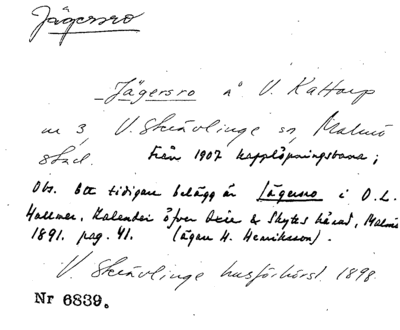 Jägersro
Jägersro å V. Kattarp
nr 3, V. Skrävlinge sn, Malmö
stad. Från 1907 kapplöpningsbana;
Obs. ett tidigare belägg är Jägersro i O. L.
Hallmer, Kalender öfver Oxie & Skytts härad, Malmö
1891. pag. 41. (ägare H. Henriksson).
V. Skrävlinge husförhörsl. 1898.
Nr 6839.